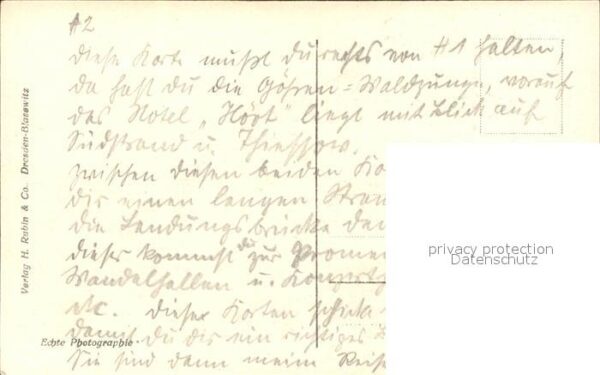 #2
diese Karte mußt du rechts von #1 halten,
da hast du die Göhren = Waldzunge, worauf
das Hotel „Hört“ liegt mit Blick auf
Südstrand u. Thiessow.
zwischen diesen beiden Ka
dir einen langen Stran
die Landungsbrücke den
dieser kommst du zur Promen
Wandelhallen u. Konzert
etc. dieser Karten schicke
damit du dir ein richtiges
Sie sind dann meine Reise
Verlag H. Rubin & Co. Dresden-Blasewitz
Echte Photographie
privacy protection
Datenschutz